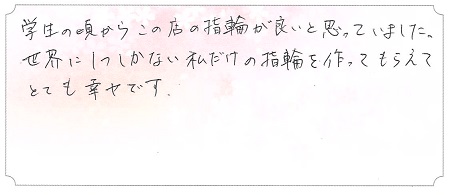 学生の頃からこの店の指輪が良いと思っていました。
世界に1つしかない私だけの指輪を作ってもらえて
とても幸せです.